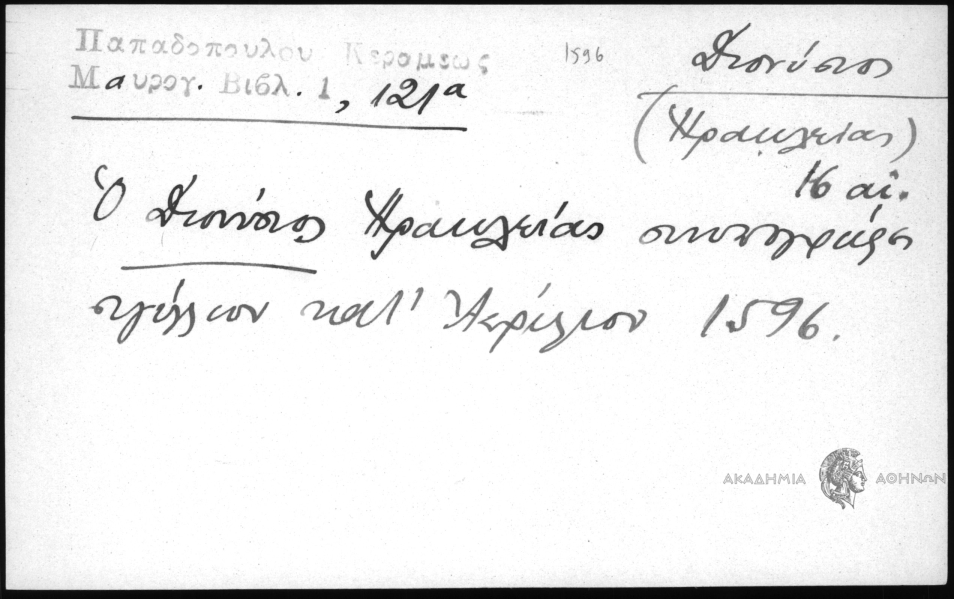 Παπαδοπουλου Κεραμεως
Μαυρογ. Βιβλ. 1, 121α
1596
Διονύσιος
(Ἡρακλείας)
16 αἰ.
Ὁ Διονύσιος Ἡρακλείας συνυπογράφει
σιγίλλιον κατ' Ἀπρίλιον 1596.
ΑΚΑΔΗΜΙΑ ΑΘΗΝΩΝ